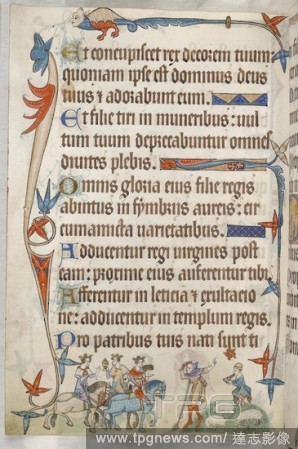 Et concupiscet rex decorem tuum
quoniam ipse est dominus deus
tuus & adorabunt eum.
Et filie tiri in muneribus: uul
tum tuum deprecabuntur omnes
diuites plebis.
Omnis gloria eius filie regis
abintus in fymbriis aureis: cir
cumamicta uarietatibus.
Adducentur regi uirgines post
eam: proxime eius afferentur tibi.
Afferentur in leticia & exultacio
ne: adducentur in templum regis.
Pro patribus tuis nati sunt ti
TPG
www.tpgnews.com/ 達志影像